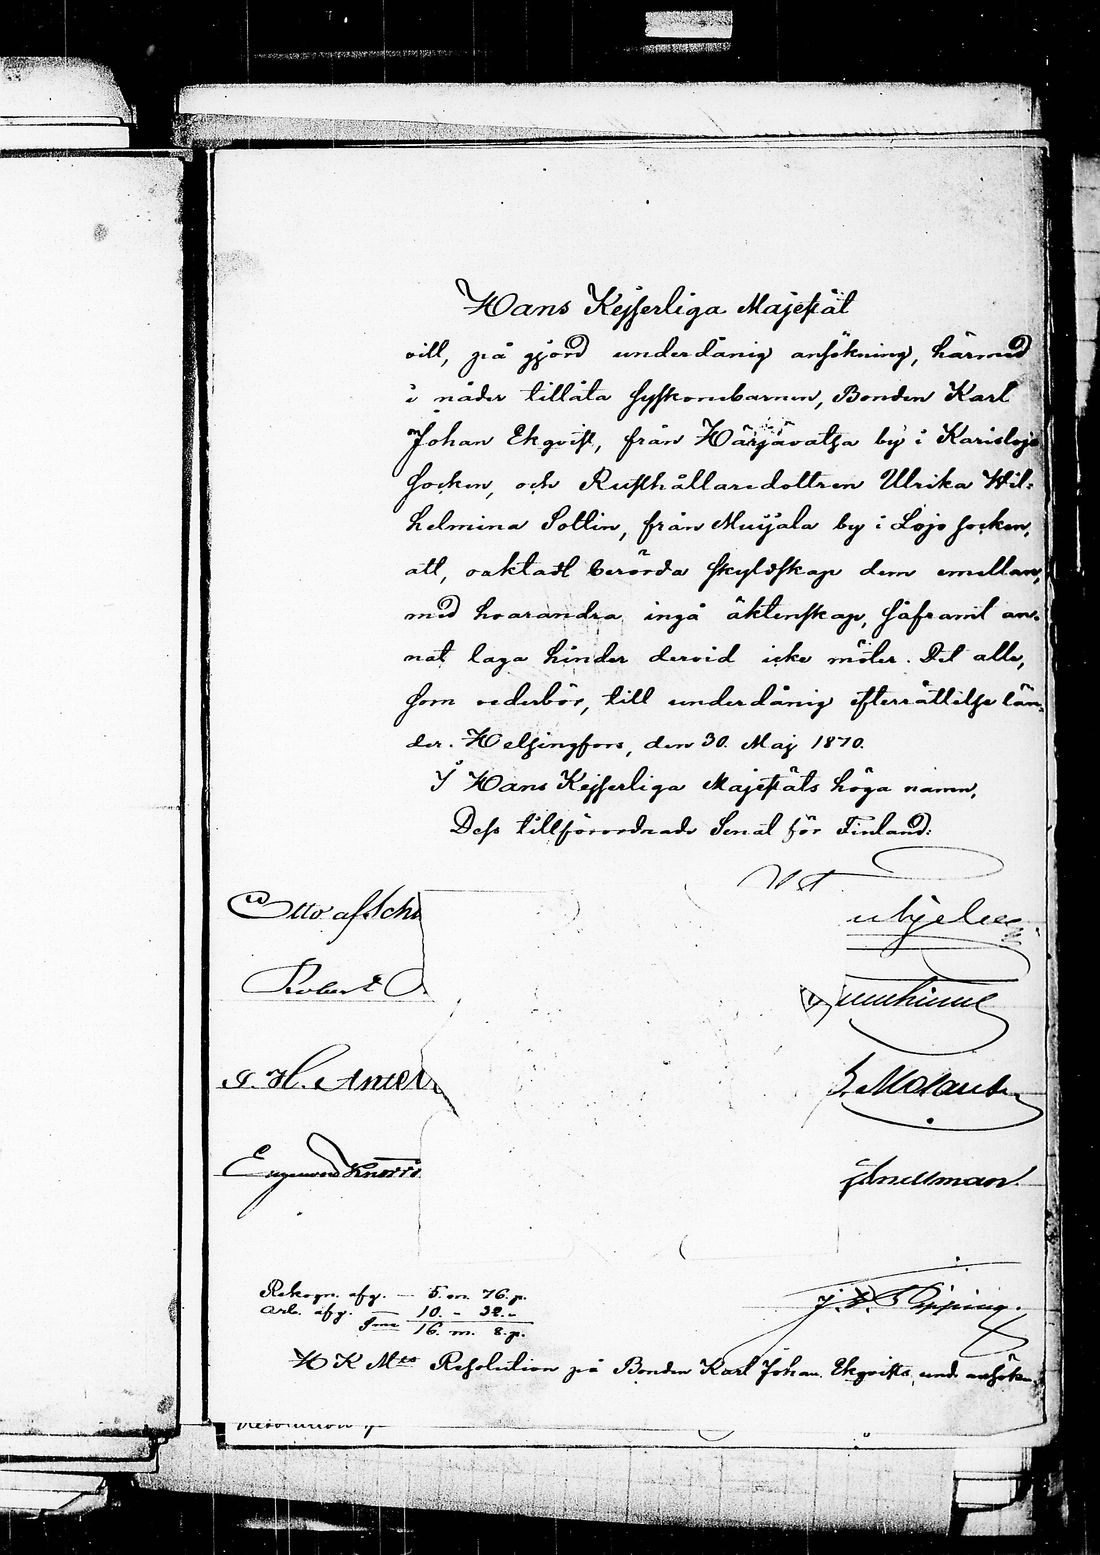 Hans Kejserliga Majestät
vill, på gjord underdånig ansökning, härmed
i nåder tillåta syskonebarnen, Bonden Karl
Johan Ekqvist, från Härjävatsa by i Karislojo
socken, och Rusthållaredottren Ulrika Wil-
helmina Sottin, från Muijala by i Lojo socken,
att, oaktadt berörda skyldskap dem emellan,
med hvarandra ingå äktenskap, såframt an-
nat laga hinder dervid icke möter. Det alle,
som vederbör, till underdånig efterrättelse län-
der. Helsingfors, den 30. Maj 1870.
I Hans Kejserliga Majestäts höga namn,
Dess tillförordnade Senat för Finland:
Otto af Sch
Robert
J. H. Ante
J. V. Snellman
Rekogn. afg. — 5. m. 76. p.
Arb. afg. — 10. - 32. -
Sma 16. m. 8. p.
H K Mts Resolution på Bonden Karl Johan Ekqvists und. ansökn.
Resolution